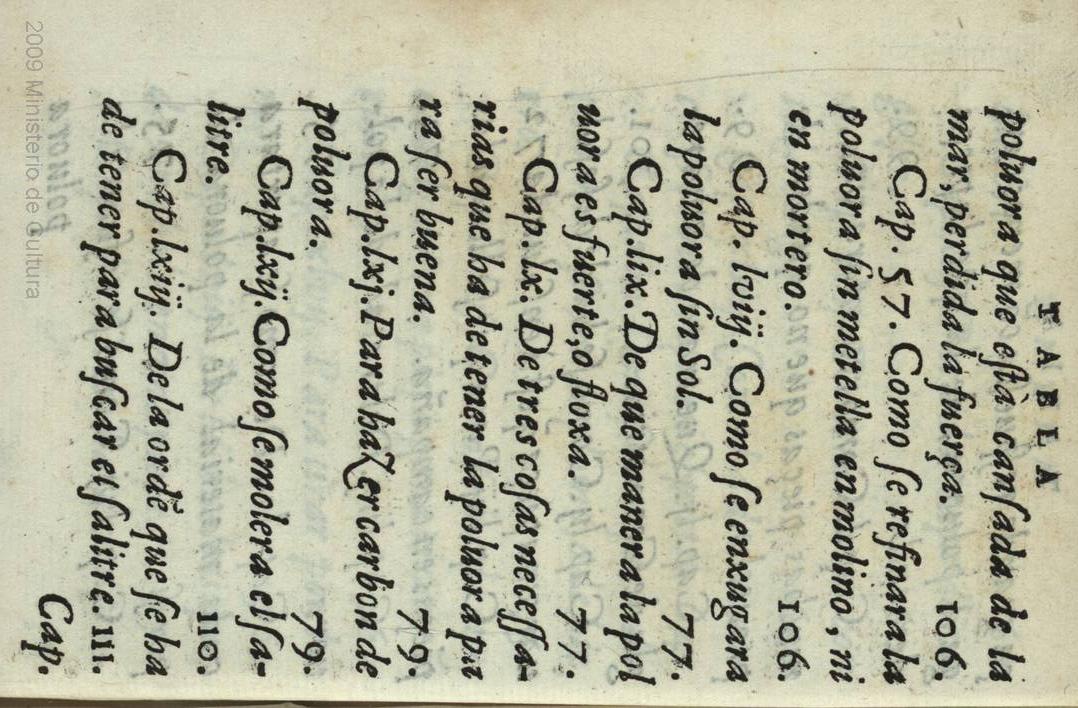 TABLA
poluora que està canſada de la
mar, perdida la fuerça. 106.
Cap. 57. Como ſe refinara la
poluora ſin metella en molino, ni
en mortero. 106.
Cap. lviij. Como ſe enxugara
la poluora ſin Sol. 77.
Cap. lix. De que manera la pol
uora es fuerte, o floxa. 77.
Cap. lx. De tres coſas neceſſa-
rias que ha de tener la poluora pa
ra ſer buena. 79.
Cap. lxj. Para haZer carbon de
poluora. 79.
Cap. lxij. Como ſe molera el ſa-
litre. 110.
Cap. lxiij. De la ordẽ que ſe ha
de tener para buſcar el ſalitre. 111.
Cap.
2009 Ministerio de Cultura